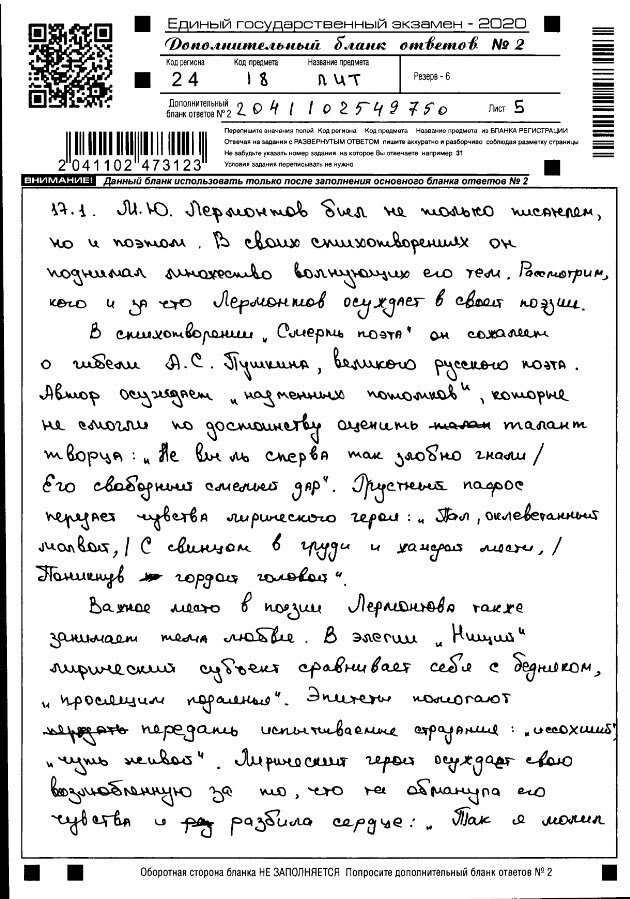 Единый государственный экзамен - 2020
Дополнительный бланк ответов № 2
Код региона Код предмета Название предмета
24 18 ЛИТ Резерв - 6
Дополнительный бланк ответов № 2 2041102549750 Лист 5
Перепишите значения полей Код региона Код предмета Название предмета из БЛАНКА РЕГИСТРАЦИИ
Отвечая на задания с РАЗВЕРНУТЫМ ОТВЕТОМ пишите аккуратно и разборчиво соблюдая разметку страницы
Не забудьте указать номер задания на которое Вы отвечаете например 31
Условия задания переписывать не нужно
2 041102 473123
ВНИМАНИЕ! Данный бланк использовать только после заполнения основного бланка ответов № 2
17.1. М.Ю. Лермонтов был не только писателем,
но и поэтом. В своих стихотворениях он
поднимал множество волнующих его тем. Рассмотрим,
кого и за что Лермонтов осуждает в своей поэзии.
В стихотворении „Смерть поэта" он сожалеет
о гибели А.С. Пушкина, великого русского поэта.
Автор осуждает „надменных потомков", которые
не смогли по достоинству оценить талан талант
творца: „Не вы ль сперва так злобно гнали /
Его свободный смелый дар". Грустный пафос
передает чувства лирического героя: „Пал, оклеветанный
молвой, / С свинцом в груди и жаждой мести, /
Поникнув гордой головой".
Важное место в поэзии Лермонтова также
занимает тема любви. В элегии „Нищий"
лирический субъект сравнивает себя с бедняком,
„просящим подаянья". Эпитеты помогают
передать передать испытываемые страдания: „иссохший",
„чуть живой". Лирический герой осуждает свою
возлюбленную за то, что та обманула его
чувства и разбила сердце: „Так я молил
Оборотная сторона бланка НЕ ЗАПОЛНЯЕТСЯ Попросите дополнительный бланк ответов № 2